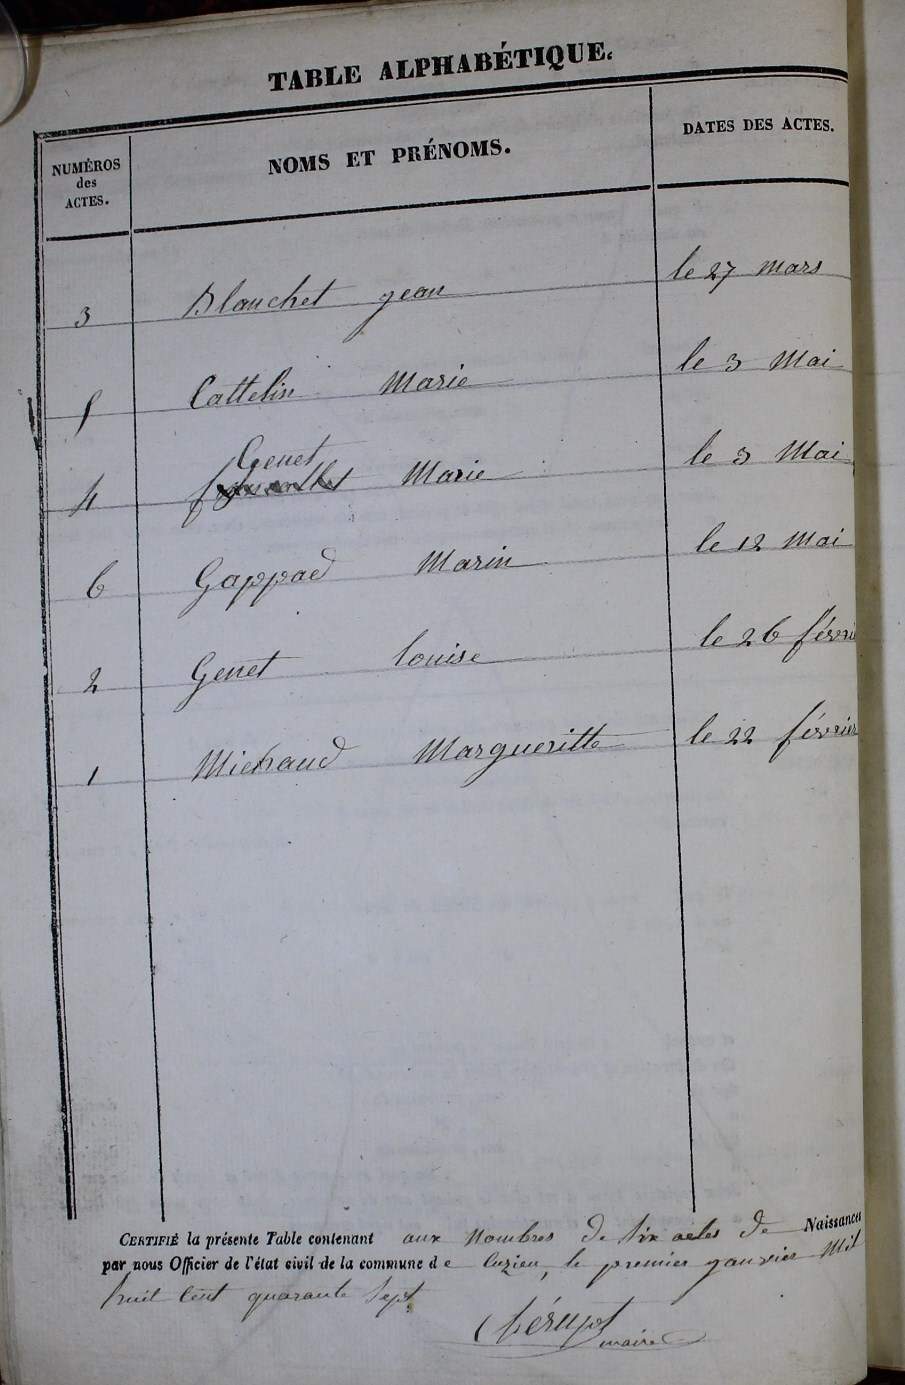 TABLE ALPHABÉTIQUE.
NUMÉROS des ACTES. NOMS ET PRÉNOMS. DATES DES ACTES.
3 Blanchet jean le 27 mars
5 Cattelin Marie le 3 Mai
Genet
4 Marie le 3 Mai
6 Gappad Marin le 12 Mai
2 Genet louise le 26 févri
1 Michaud Margueritte le 22 février
CERTIFIÉ la présente Table contenant aux Nombres de Six actes de Naissances
par nous Officier de l'état civil de la commune de Cuzieu, le premier janvier Mil
huit cent quarante Sept
maire